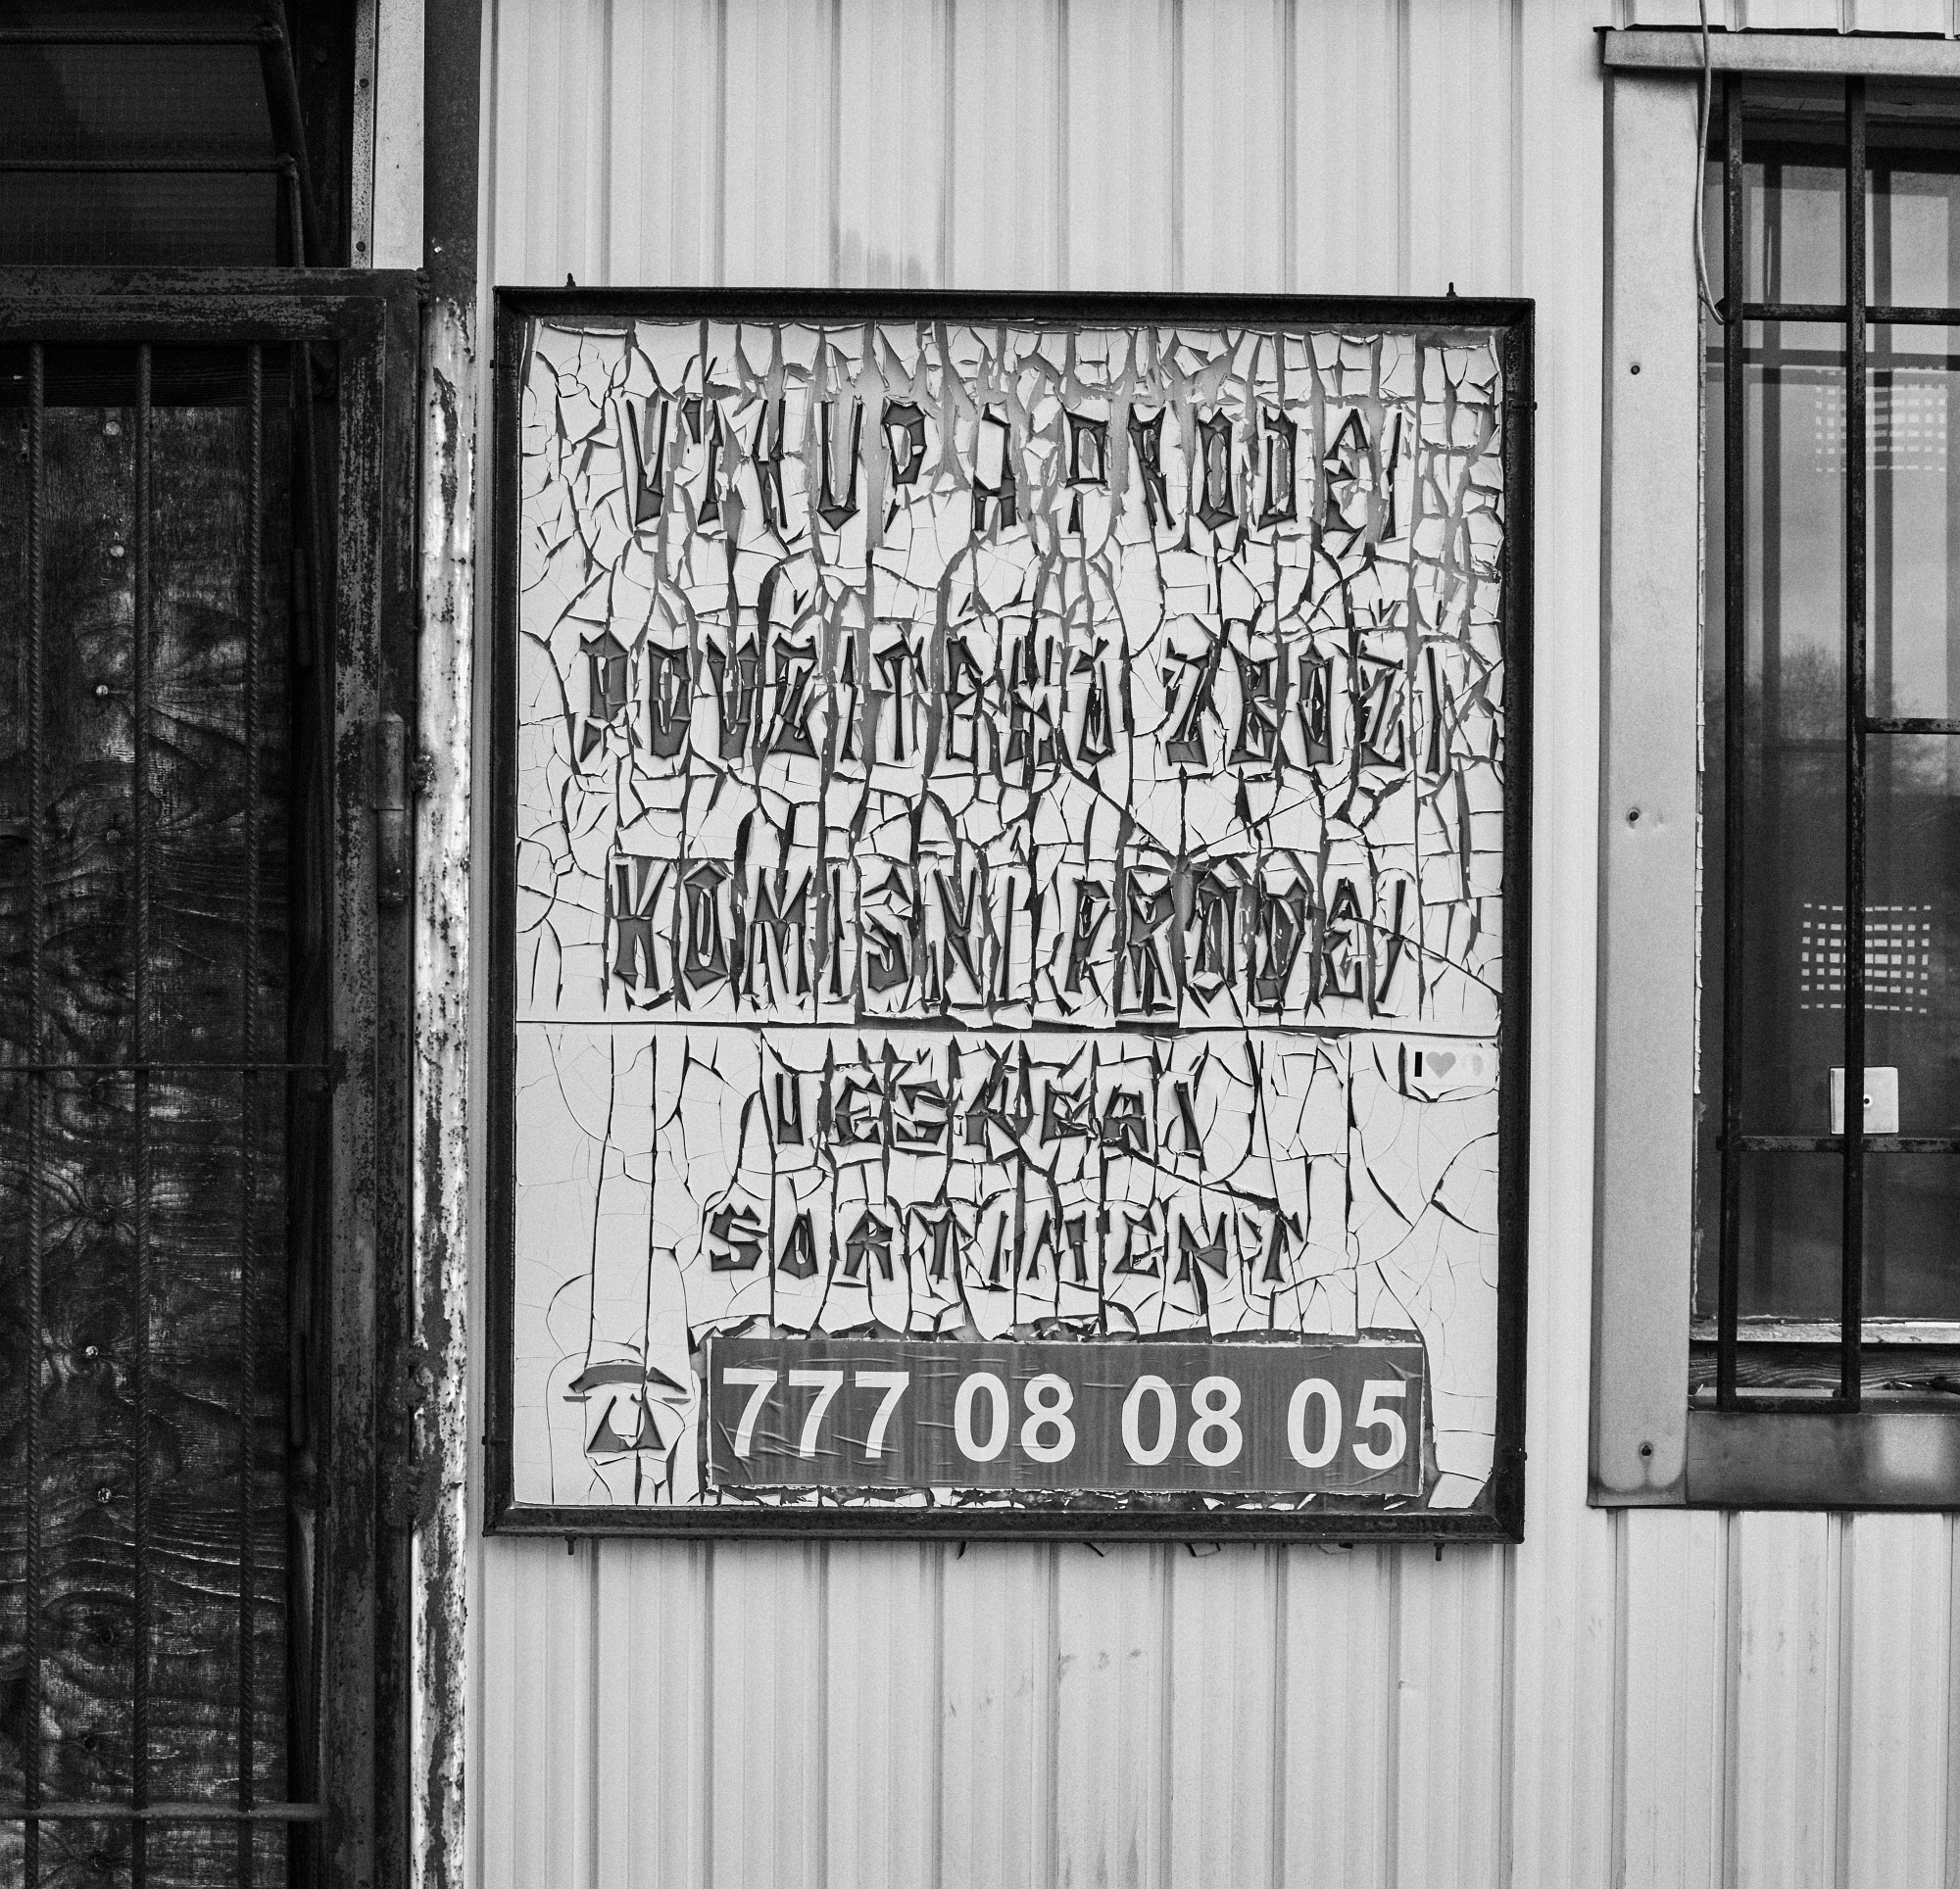 VÝKUP A PRODEJ
POUŽITÉHO ZBOŽÍ
KOMISNÍ PRODEJ
VEŠKERÝ
SORTIMENT
I ♥
777 08 08 05